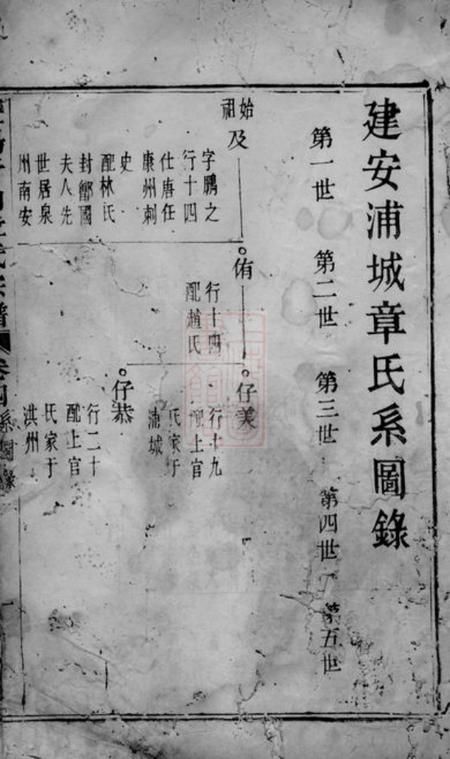 建安浦城章氏系圖錄
第一世 第二世 第三世 第四世 第五世
始祖
及
字鵬之
行十四
仕唐任
康州刺
史
配林氏
封鄶國
夫人先
世居泉
州南安
侑
行十四
配趙氏
仔美
行十九
配上官
氏家于
浦城
仔恭
行二十
配上官
氏家于
洪州
章氏宗譜
卷
系圖錄
一